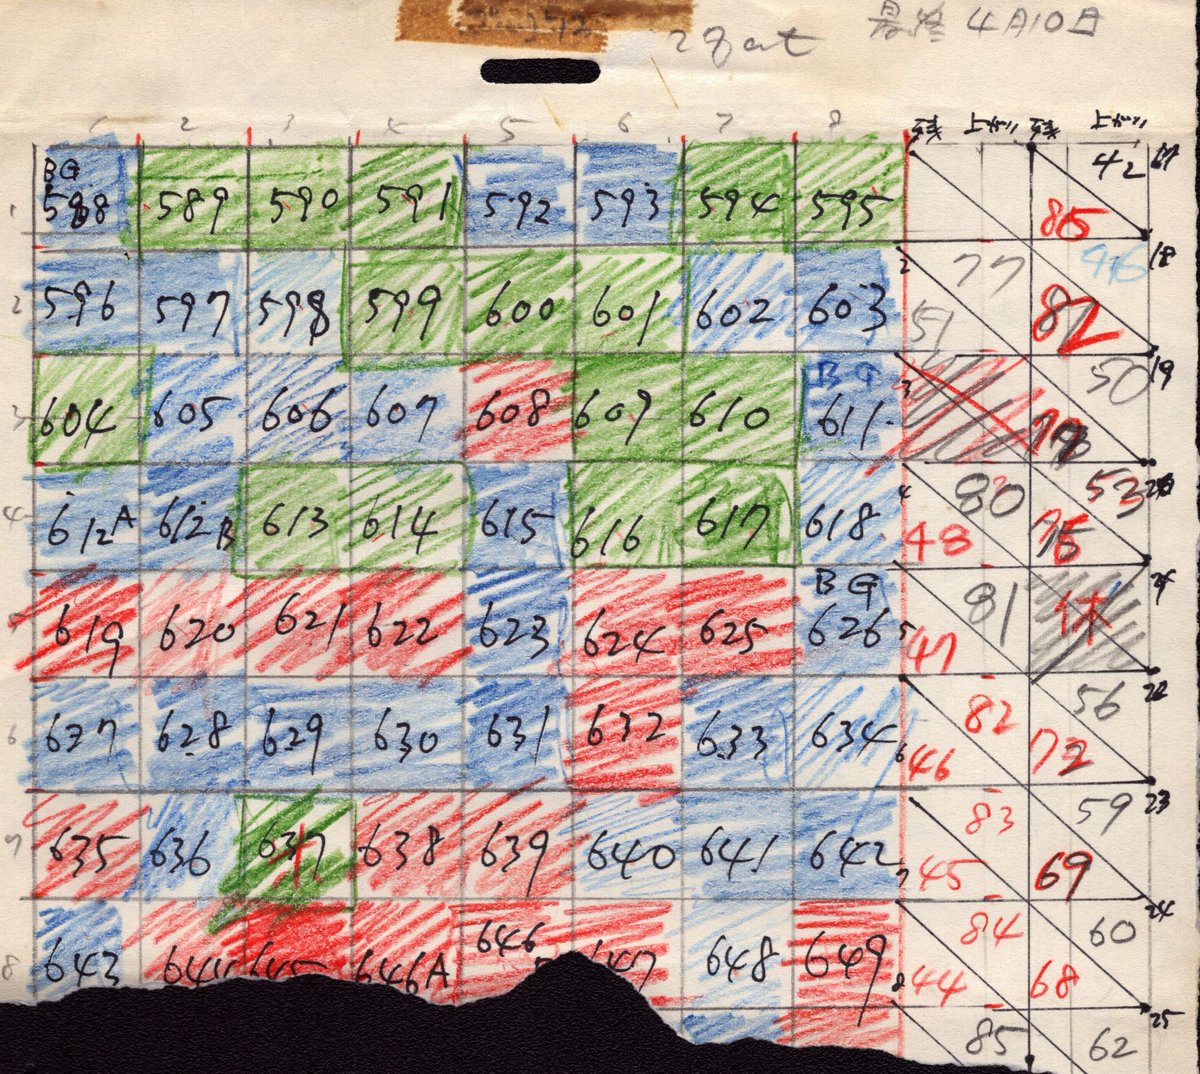 最終 4月10日
1 2 3 4 5 6 7 8 残 上がり 残 上がり
BG
1 588 589 590 591 592 593 594 595 42 17
85
2 596 597 598 599 600 601 602 603 2 77 46 18
51 82
BG
3 604 605 606 607 608 609 610 611 3 50 19
4 612A 612B 613 614 615 616 617 618 4 80 53 20
48 75
BG
5 619 620 621 622 623 624 625 626 5 81 休 21
47
6 627 628 629 630 631 632 633 634 6 82 56 22
46 72
7 635 636 637 638 639 640 641 642 7 83 59 23
45 69
8 643 644 645 646A 646 647 648 649 8 84 60 24
44 68
85 62 25